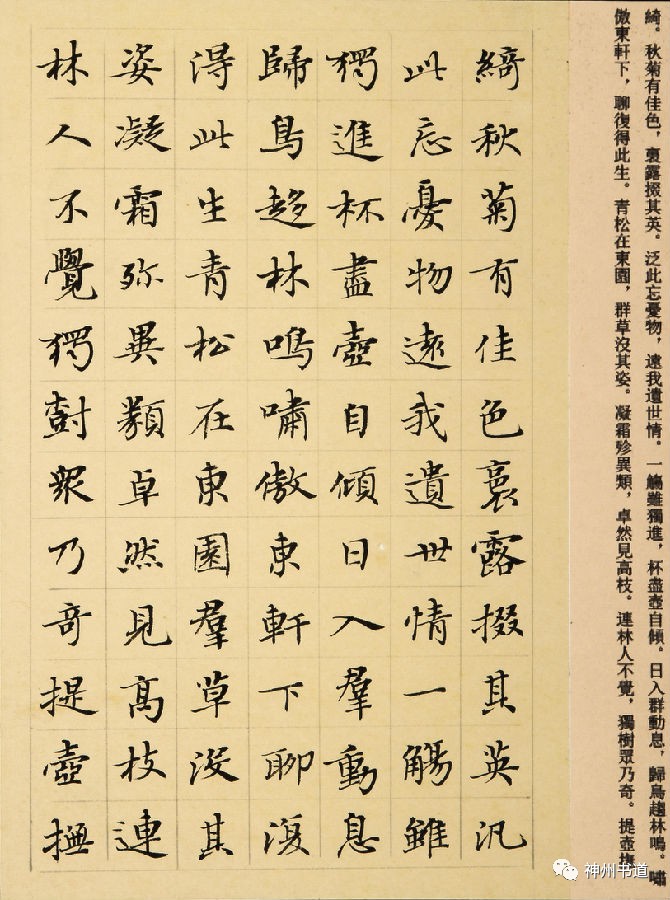 綺。秋菊有佳色，裛露掇其英。泛此忘憂物，遠我遺世情。一觴雖獨進，杯盡壺自傾。日入群動息，歸鳥趨林鳴。嘯
傲東軒下，聊復得此生。青松在東園，群草沒其姿。凝霜殄異類，卓然見高枝。連林人不覺，獨樹眾乃奇。提壺撫
綺秋菊有佳色裛露掇其英汎
此忘憂物遠我遺世情一觴雖
獨進杯盡壺自傾日入羣動息
歸鳥趍林鳴嘯傲東軒下聊復
得此生青松在東園羣草沒其
姿凝霜殄異類卓然見高枝連
林人不覺獨樹衆乃奇提壺撫
神州书道